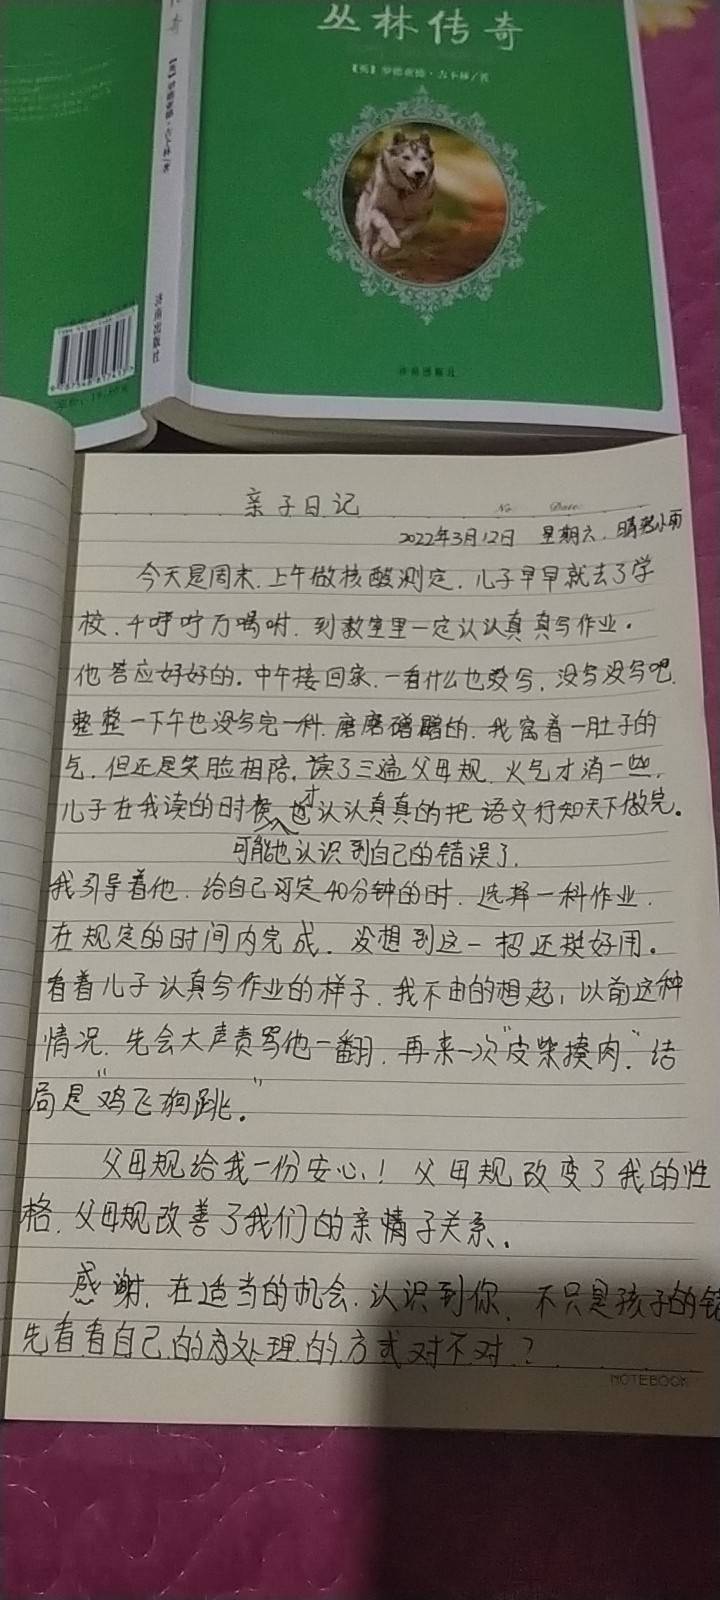 丛林传奇
【英】罗德亚德·吉卜林/著
济南出版社
济南出版社
亲子日记
No. Date.
2022年3月12日 星期六. 晴転小雨
今天是周末.上午做核酸测定.儿子早早就去了学
校.千呼咛万嘱咐.到教室里一定认认真真写作业。
他答应好好的.中午接回家.一看什么也没写.没写没写吧.
整整一下午也没写完一科.磨磨蹭蹭的.我窝着一肚子的
气.但还是笑脸相陪.读了三遍父母规.火气才消一些.
儿子在我读的时候也才认认真真的把语文行知天下做完。
可能也认识到自己的错误了.
我引导着他.给自己河定40分钟的时.选择一科作业.
在规定的时间内完成.没想到这一招还挺好用。
看着儿子认真写作业的样子.我不由的想起,以前这种
情况.先会大声责骂他一翻.再来一次"皮柴揍肉".结
局是"鸡飞狗跳。"
父母规给我一份安心!父母规改变了我的性
格.父母规改善了我们的亲情子关系.
感谢.在适当的机会.认识到你.不只是孩子的错
先看看自己的处理的方式对不对?
NOTEBOOK